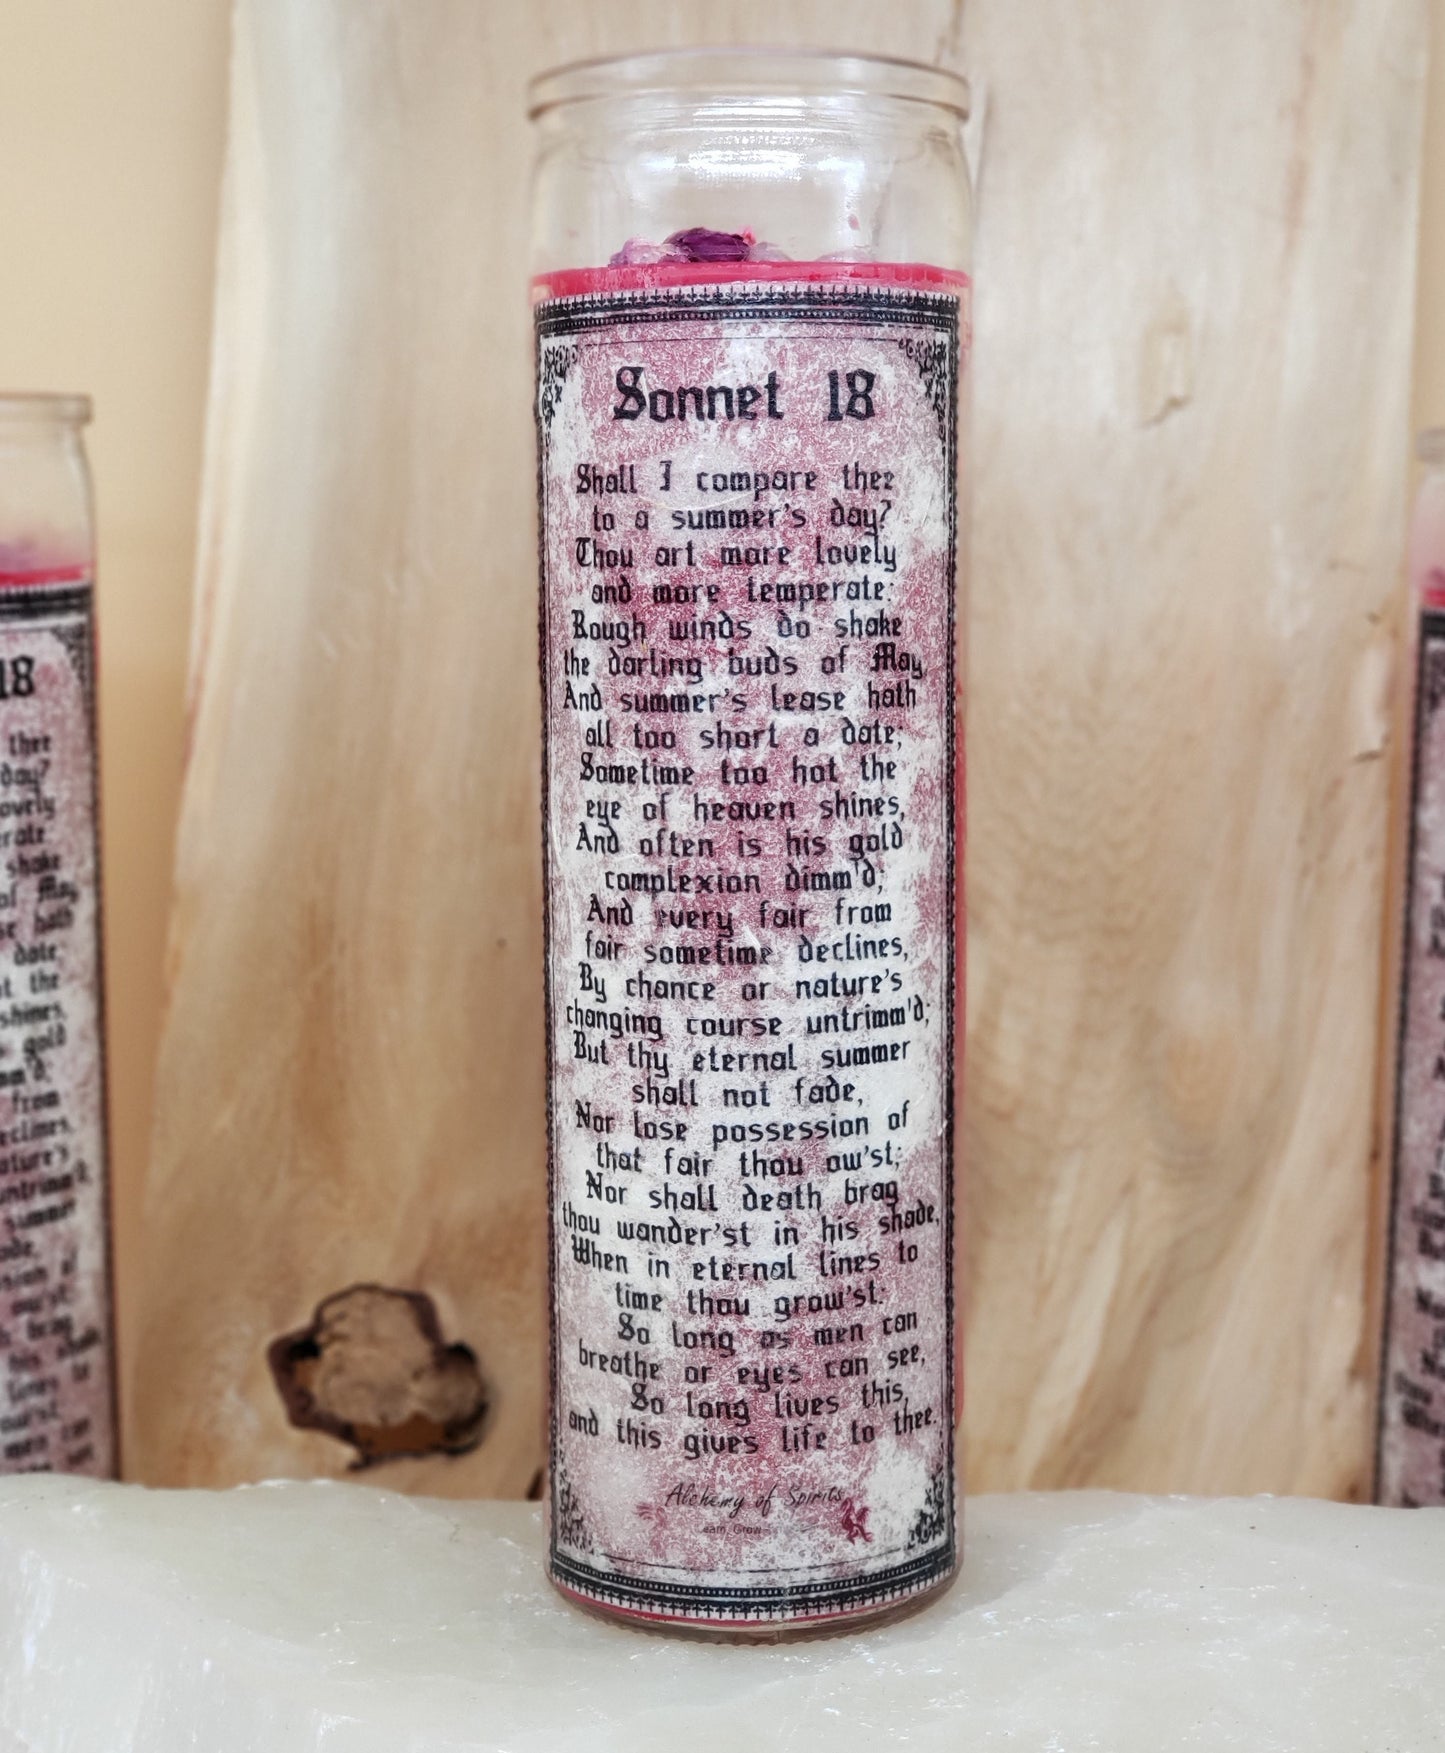 Sonnet 18
Shall I compare thee
to a summer's day?
Thou art more lovely
and more temperate:
Rough winds do shake
the darling buds of May,
And summer's lease hath
all too short a date;
Sometime too hot the
eye of heaven shines,
And often is his gold
complexion dimm'd;
And every fair from
fair sometime declines,
By chance or nature's
changing course untrimm'd;
But thy eternal summer
shall not fade,
Nor lose possession of
that fair thou ow'st;
Nor shall death brag
thou wander'st in his shade,
When in eternal lines to
time thou grow'st:
So long as men can
breathe or eyes can see,
So long lives this,
and this gives life to thee.
Alchemy of Spirits
Grow
18
thee
day?
shake
of May,
hath
date;
the
shines,
gold
from
summer